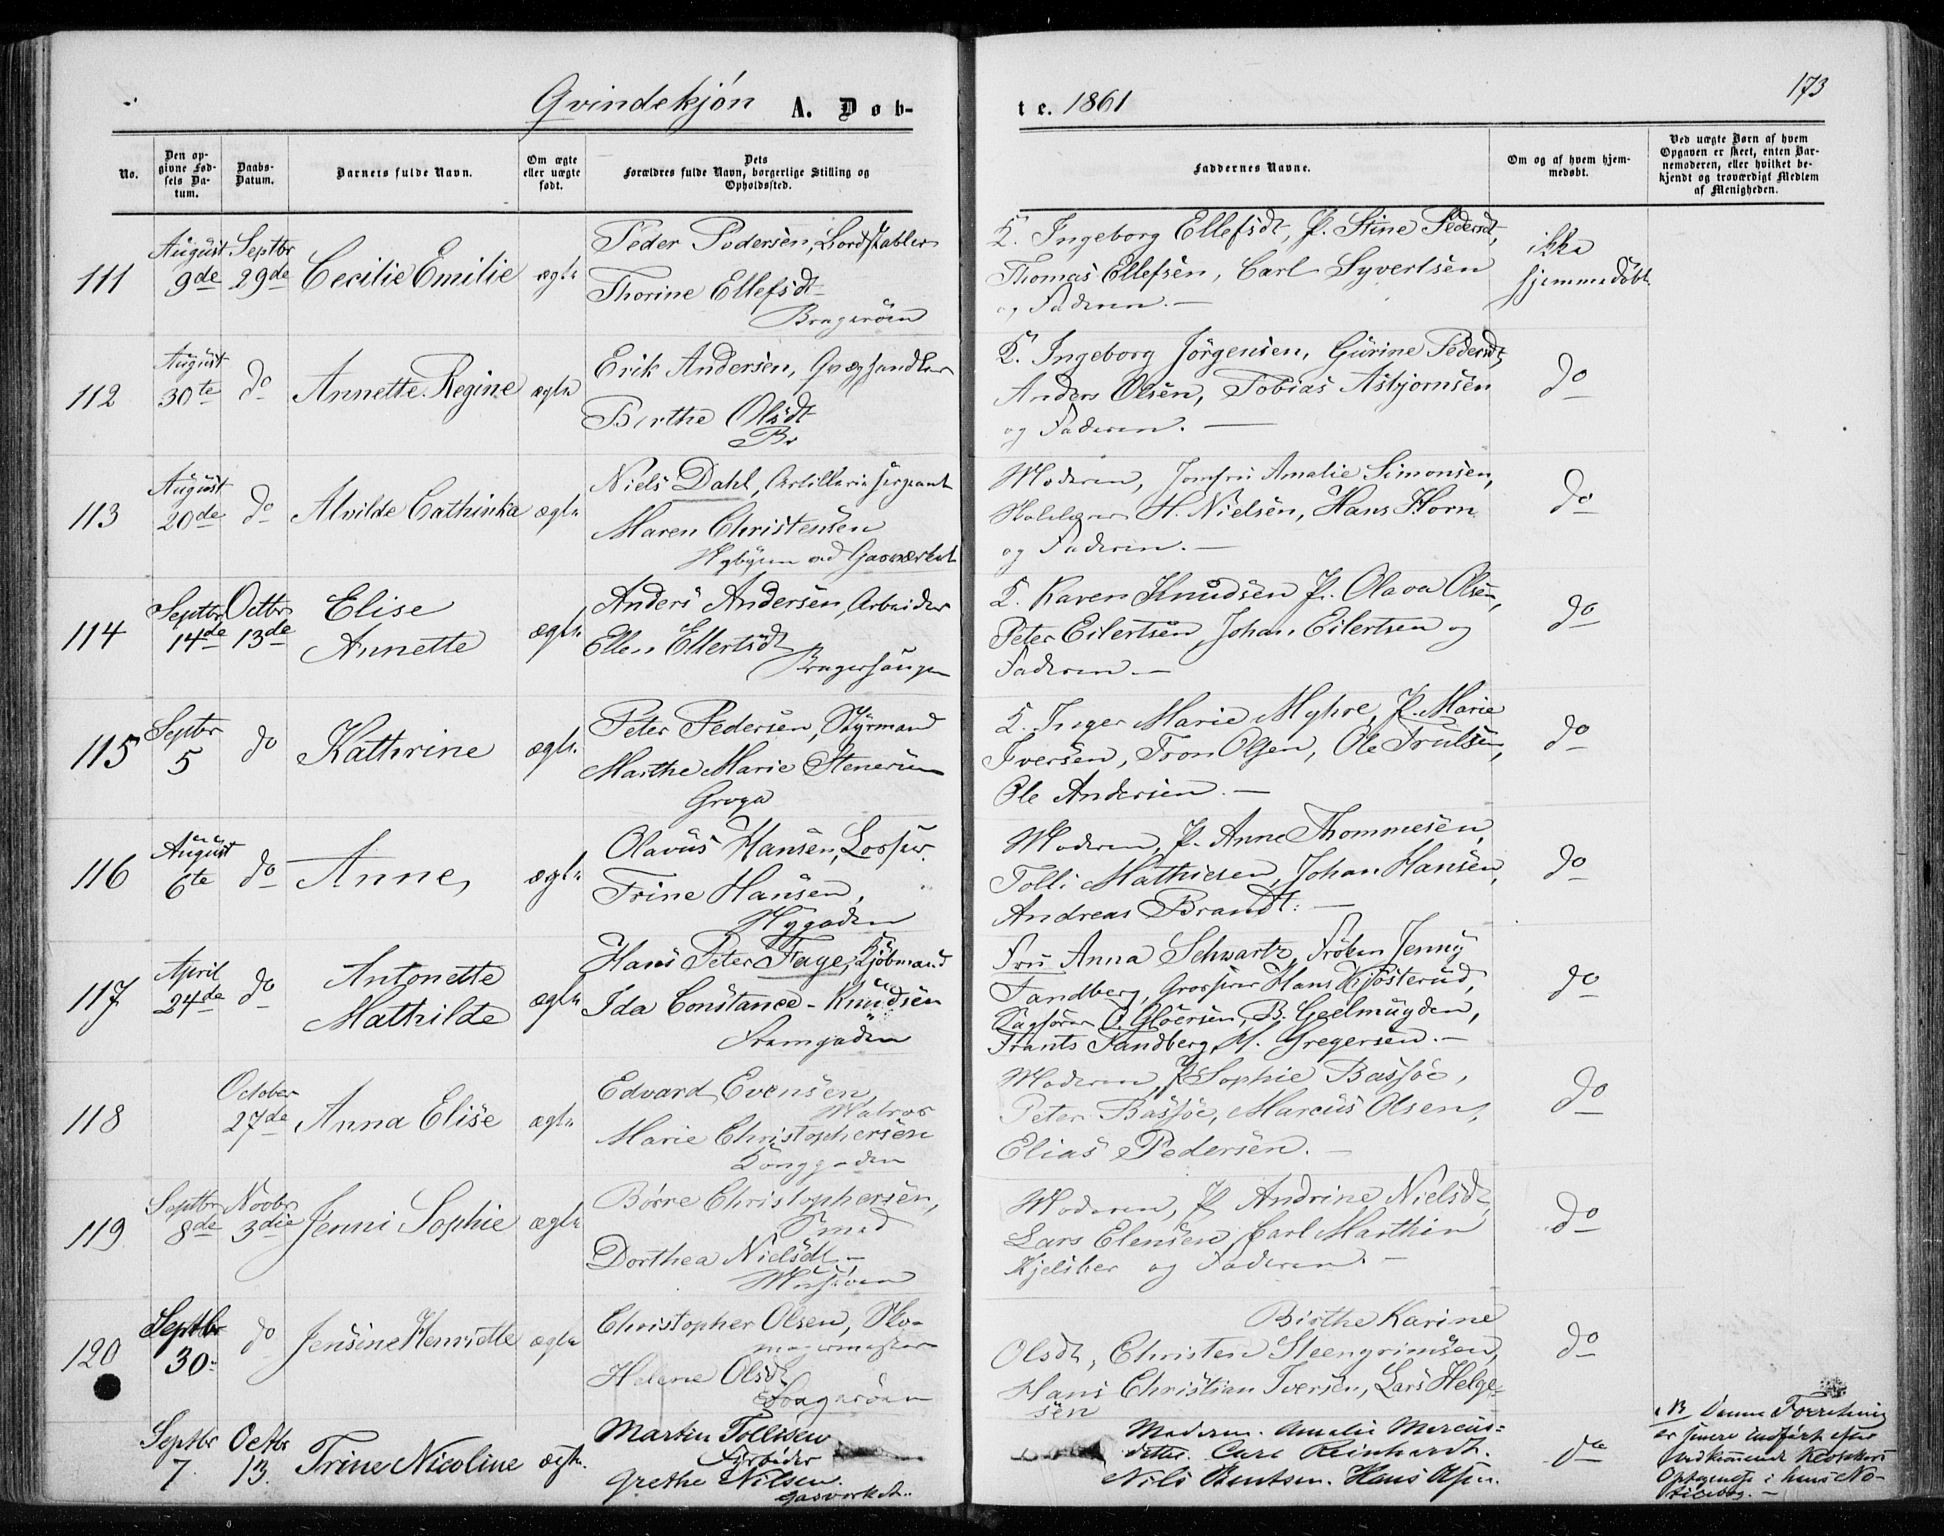 Qvindekjön A. Døb-
te. 1861
173
No.
Den op-
givne Fød-
sels Da-
tum.
Daabs-
Datum.
Barnets fulde Navn.
Om ægte
eller uægte
født.
Dets
Forældres fulde Navn, borgerlige Stilling og
Opholdssted.
Faddernes Navne.
Om og af hvem hjem-
medøbt.
Ved uægte Børn af hvem
Opgaven er skeet, enten Bar-
nemoderen, eller hvilket be-
kjendt og troværdigt Medlem
af Menigheden.
111
August
9de
Septbr
29de
Cecilie Emilie
ægte
Peder Pedersen, Bordstabler
Thorine Ellefsdt
Bragerøen
Ingeborg Ellefsdt, P. Stine Pedersdt,
Thomas Ellefsen, Carl Syvertsen
og Faderen. —
ikke
hjemmedöbt
112
August
30te
do
Annette Regine
ægte
Erik Andersen, Qvæghandler
Birthe Olsdt
Br
Ingeborg Jörgensen, Gürine Pedersdt,
Anders Olsen, Tobias Asbjornsen
og Faderen. —
do
113
August
20de
do
Alvilde Cathinka
ægte
Niels Dahl, Artillerie sergeant
Maren Christensen
Nybyen ved Gasværket
Moderen, Jomfru Amalie Simonsen,
Skolelærer H. Nielsen, Hans Horn
og Faderen. —
do
114
Septbr
14de
Octbr
13de
Elise
Annette
ægte
Anders Andersen, Arbeider
Ellen Ellertsdt
Bragerhaugen
Karen Knudsen P. Olava Olsen,
Peter Eilertsen, Johan Eilertsen og
Faderen —
do
115
Septbr
5
do
Kathrine
ægte
Peter Pedersen, Styrmand
Marthe Marie Stenersen
Inger Marie Myhre, P. Marie
Iversen, Tron Olsen, Ole Trulsen,
Ole Andersen. —
do
116
August
6te
do
Anne,
ægte
Olavus Hansen, Losser
Trine Hansen,
Nygaden
Moderen, P. Anne Thommesen,
Tolli Mathiesen, Johan Hansen,
Andreas Brandt. —
do
117
April
24de
do
Antonette
Mathilde
ægte
Hans Peter Faye, Kjöbmand
Ida Constance - Knudsen
Strømgaden
Fru Anna Schwartz, Fröken Jenny
Tandberg, Grosserer Hans Kjøsterud,
Sagförer O. Gløersen, B. Geelmuyden,
Frants Tandberg, M. Gregersen. —
do
118
October
27de
Anna Elise
ægte
Edvard Evensen,
Matros
Marie Christophersen
Konggaden
Moderen, P Sophie Bassöe,
Peter Bassöe, Marcus Olsen,
Elias Pedersen. —
do
119
Septbr
8de
Novbr
3die
Jenni Sophie
ægte
Börre Christophersen,
Smed
Dorthea Nielsdt —
Moderen, P Andrine Nielsdt,
Lars Elensen, Carl Marthin
og Faderen. —
do
120
Septbr
30
do
Jensine Henriette
ægte
Christopher Olsen, Sko-
magermester
Helene Olsdt
Bragerøen
Birthe Karine
Olsdt, Christen Steengrimsen,
Hans Christian Iversen, Lars Helge-
sen
do
Septbr
7
Octbr
13.
Trine Nicoline
ægte.
Martin Tollisen
Arbeider
Grethe Nilsen.
Gasverket.
Moderen. Amalie Marcus-
datter. Carl Reinhardt.
Nils Bentsen. Hans
do
NB Denne Forretning
er senere indført efter
vedkommende Klokkers
Optegnelse i hans No-
titsbog. —